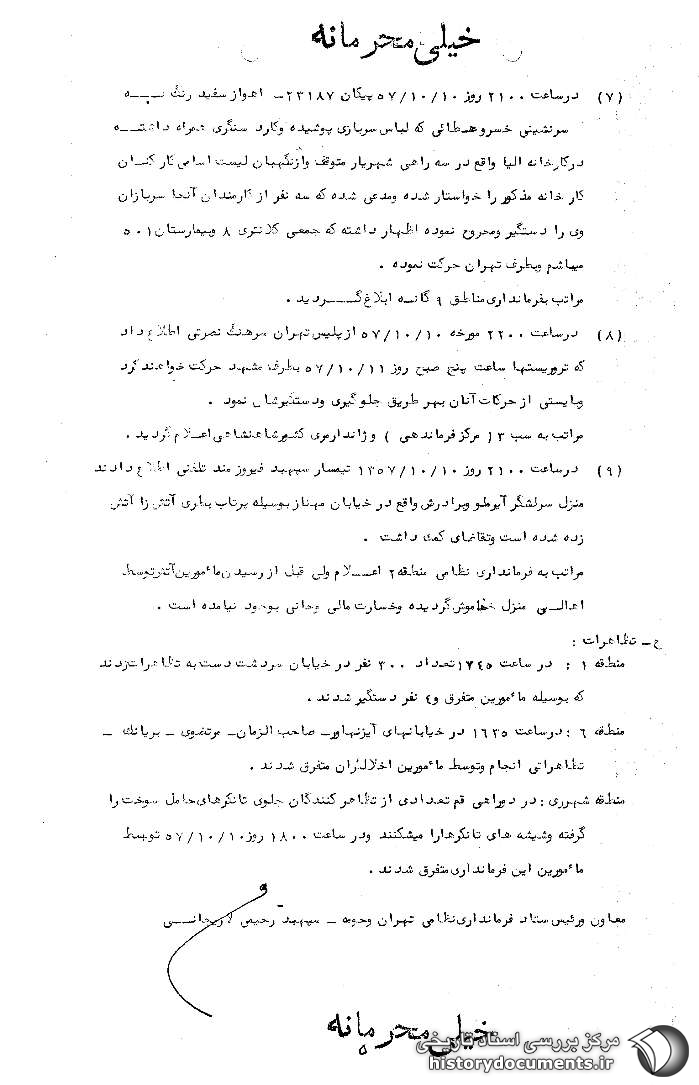 خیلی محرمانه
(۷) درساعت ۲۱۰۰ روز ۵۷/۱۰/۱۰ پیکان ۲۳۱۸۷ـ اهواز سفید رنگ بـــه
سرنشینی خسرو عطائی که لباس سربازی پوشیده وکارد سنگری همراه داشتـــه
درکارخانه الیا واقع در سه راهی شهریار متوقف وازنگهبان لیست اسامی کارکنان
کارخانه مذکور را خواستار شده ومدعی شده که سه نفر از کارمندان آنها سربازان
وی را دستگیر ومجروح نموده اظهار داشته که جمعی کلانتری ۸ وبیمارستان ۵۰۱
میباشم وبطرف تهران حرکت نموده .
مراتب بفرمانداری مناطق ۹ گانــه ابلاغ گـــردید .
(۸) درساعت ۲۲۰۰ مورخه ۵۷/۱۰/۱۰ ازپلیس تهران سرهنگ نصرتی اطلاع داد
که تروریستها ساعت پنج صبح روز ۵۷/۱۰/۱۱ بطرف مشهد حرکت خواهندکرد
وبایستی از حرکات آنان بهر طریق جلوگیری ودستگیرشان نمود .
مراتب به سب ۳ ( مرکز فرماندهی ) وژاندارمری کشورشاهنشاهی اعـلام گردید .
(۹) درساعت ۲۱۰۰ روز ۱۳۵۷/۱۰/۱۰ تیمسار سپهبد فیروزمند تلفنی اطلاع دادند
منزل سرلشگر آیرملو وبرادرش واقع در خیابان مهناز بوسیله پرتاب بطری آتش زا آتش
زده شده است وتقاضای کمک داشت .
مراتب به فرمانداری نظامی منطقه ۲ اعـــلام ولی قبل از رسیدن مأمورین آتش توسط
اهالـــی منزل خاموش گردیده وخسارت مالی وجانی بوجود نیامده است .
ح ـ تظاهرات :
منطقه ۱ : در ساعت ۱۷۴۵ تعداد ۳۰۰ نفر در خیابان سردشت دست به تظاهرات زدند
که بوسیله مأمورین متفرق و ۴ نفر دستگیر شدند .
منطقه ۶ : درساعت ۱۶۳۵ در خیابانهای آیزنهاور ـ صاحب الزمان ـ مرتضوی ـ بریانک ـ
تظاهراتی انجام وتوسط مأمورین اخلالگران متفرق شدند .
منطقه شهرری : در دوراهی قم تعدادی از تظاهر کنندگان جلوی تانکرهای حامل سوخت را
گرفته وشیشه های تانکرهارا میشکنند ودر ساعت ۱۸۰۰ روز ۵۷/۱۰/۱۰ توسط
مأمورین این فرمانداری متفرق شدند .
معاون ورئیس ستاد فرمانداری نظامی تهران وحومه ـ سپهبد رحیمی لاریجانـــی
خیلی محرمانه
مرکز بررسی اسناد تاریخی
historydocuments.ir